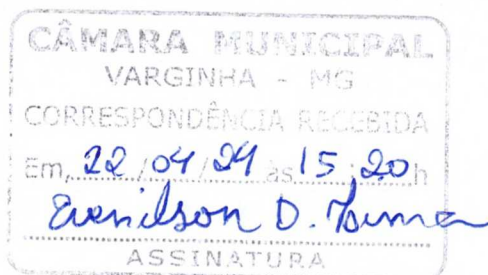 CÂMARA MUNICIPAL
VARGINHA - MG
CORRESPONDÊNCIA RECEBIDA
Em, 22/04/24 às 15:20 h
Evenilson D.
ASSINATURA